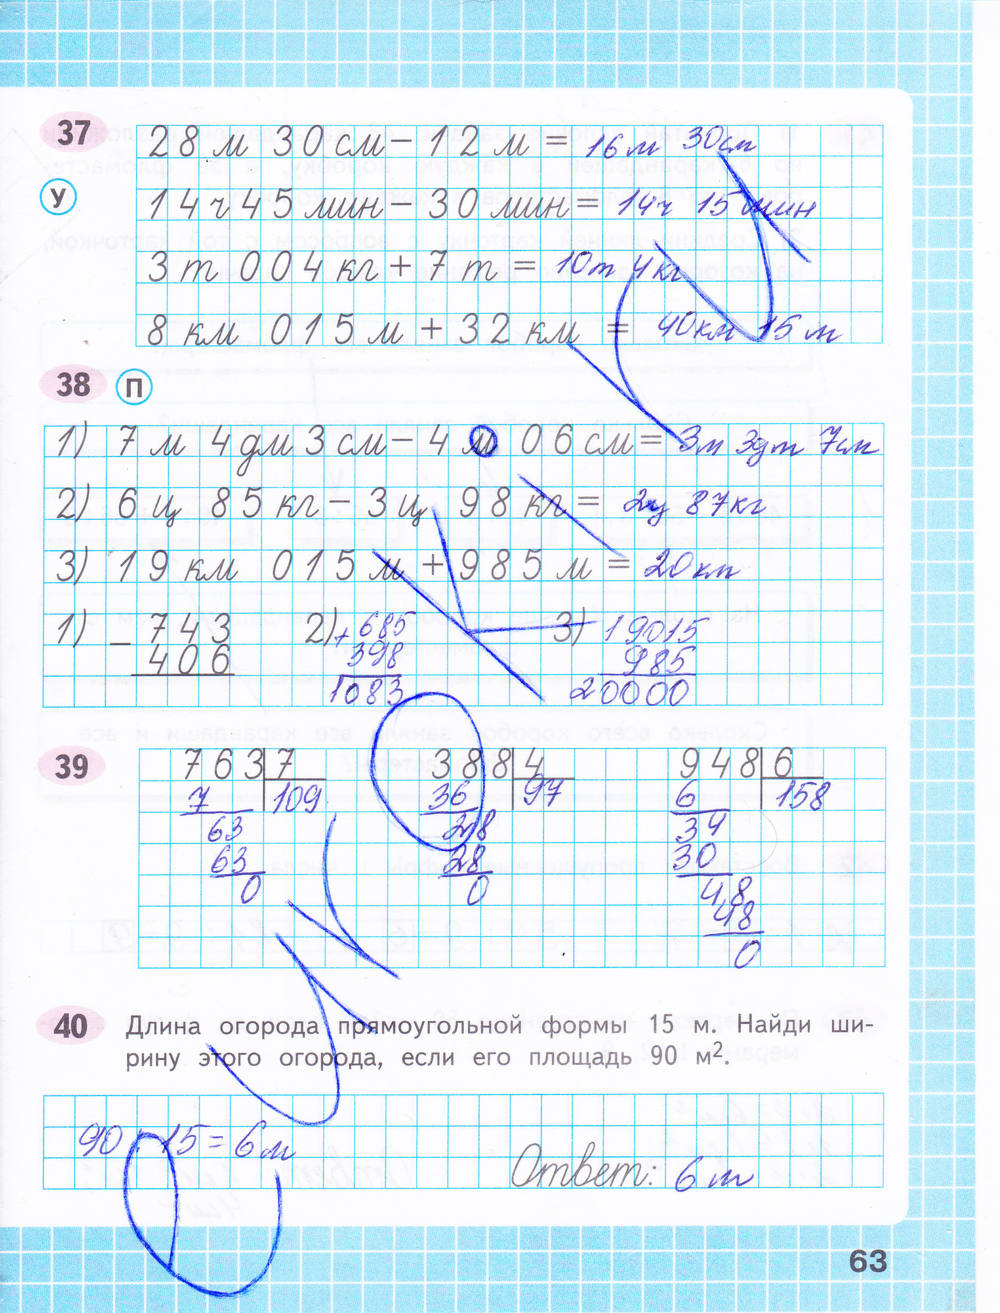 37
28 м 30 см - 12 м = 16 м 30 см
У
14 ч 45 мин - 30 мин = 14ч 15 мин
3 т 004 кг + 7 т = 10 т 4 кг
8 км 015 м + 32 км = 40 км 15 м
38 П
1) 7 м 4 дм 3 см - 4 м 06 см = 3м 3дм 7см
2) 6 ц 85 кг - 3 ц 98 кг = 2ц 87кг
3) 19 км 015 м + 985 м = 20 км
1) - 743 2) + 685 3) 19015
406 398 985
1083 20000
39
763 7 388 4 948 6
7 109 36 97 6 158
63 28 34
63 28 30
0 0 48
48
0
40 Длина огорода прямоугольной формы 15 м. Найди ши-
рину этого огорода, если его площадь 90 м².
90 : 15 = 6 м
Ответ: 6 м
63